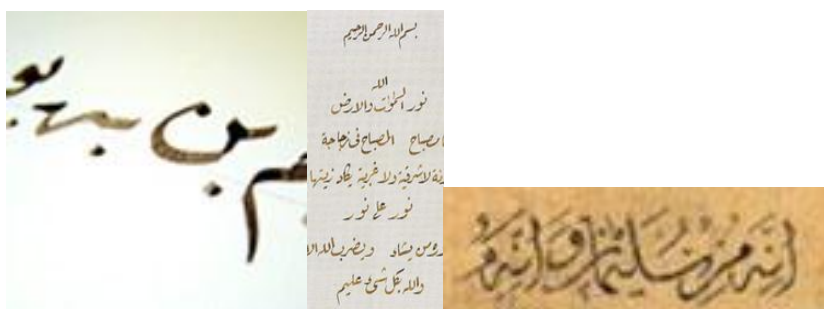 بن
بسم الله الرحمن الرحيم
الله
نور السموات والارض
مصباح المصباح فی زجاجة
لا شرقية ولا غربية يكاد زيتها
نور علی نور
من يشاء ويضرب الله
والله بكل شیء عليم
اِنَّهُ مِنْ سُلَيْمانَ وَاِنَّهُ